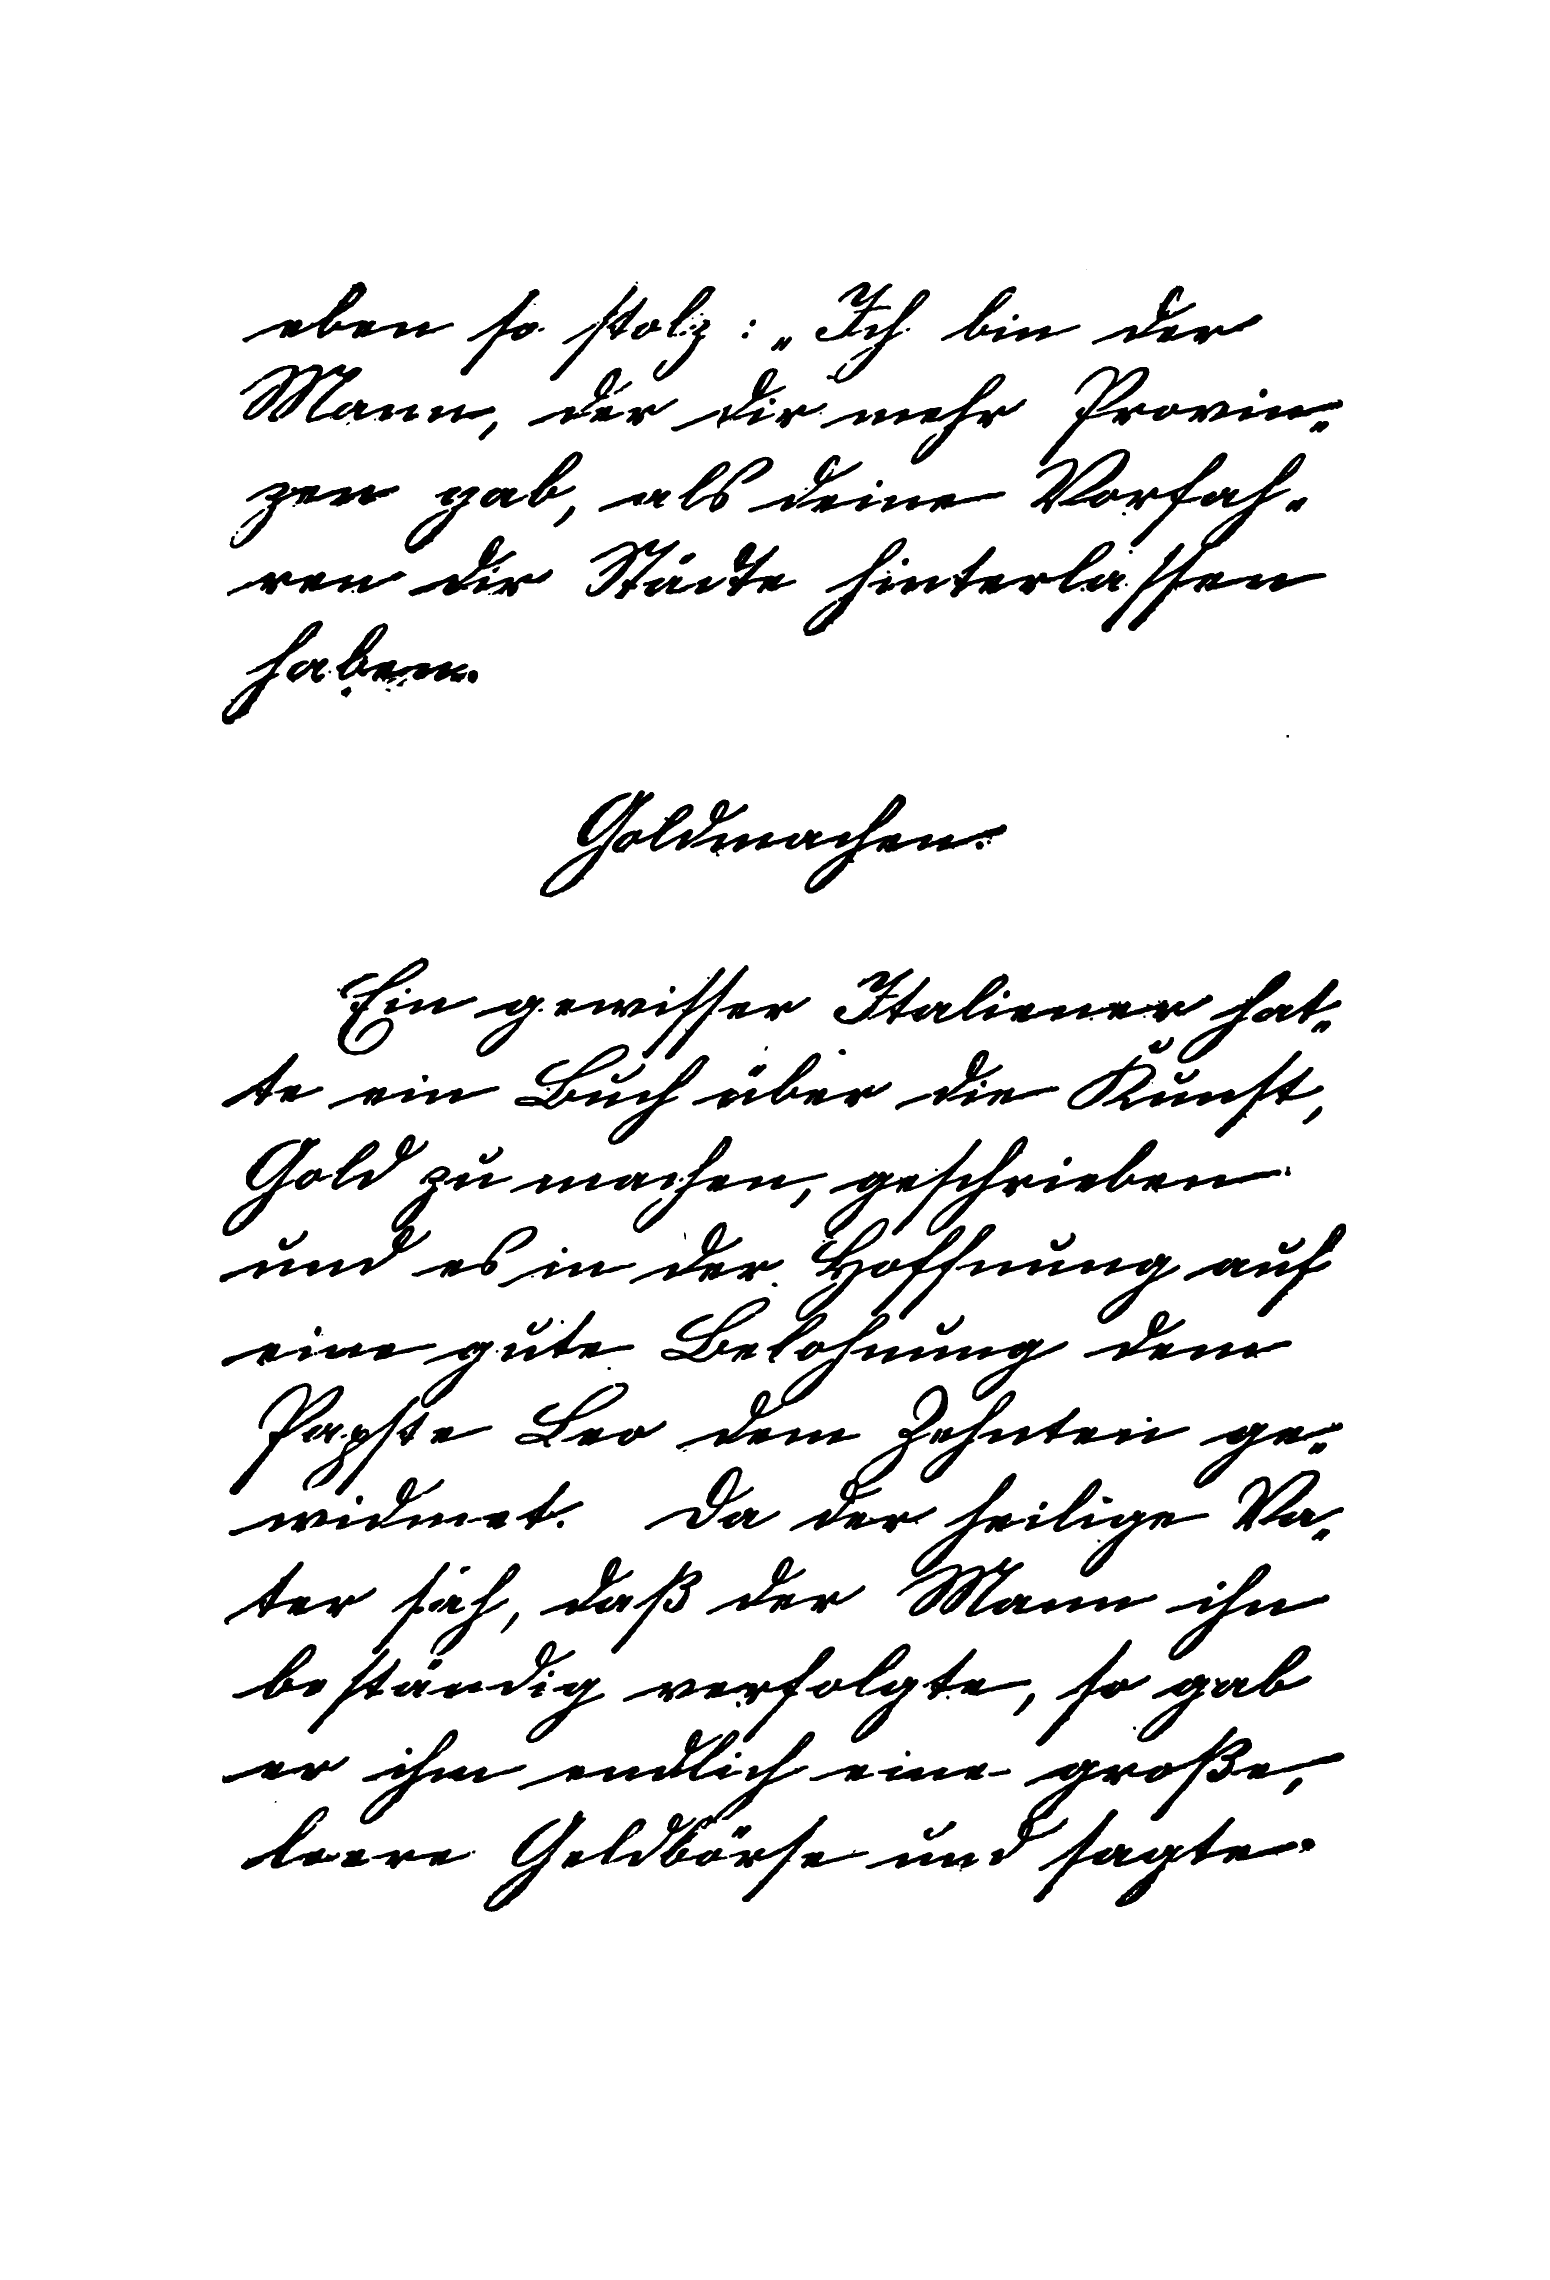 eben so stolz: „Ich bin der
Mann, der dir mehr Provin-
zen gab, als deine Vorfah-
ren dir Städte hinterlassen
haben.
Goldmachen.
Ein gewisser Italiener hat-
te ein Buch über die Kunst,
Gold zu machen, geschrieben
und es in der Hoffnung auf
eine gute Belohnung dem
Papste Leo dem Zehnten ge-
widmet. Da der heilige Va-
ter sah, daß der Mann ihn
beständig verfolgte, so gab
er ihm endlich eine große,
leere Geldbörse und sagte